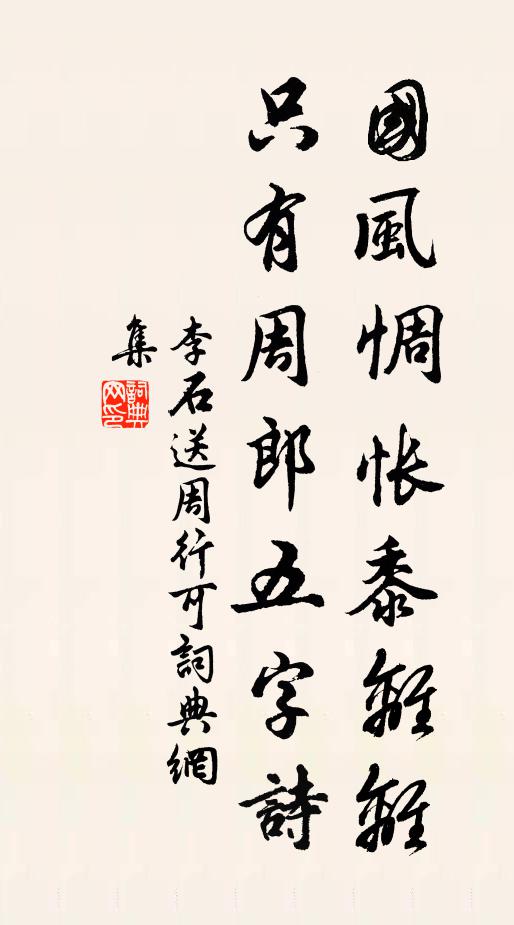 國風惆悵黍離離
只有周郎五字詩
李石送周行可詞典網
集
詞典網印